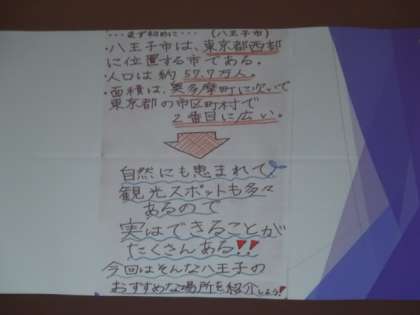 ...まず初めに... (八王子市)
・八王子市は、東京都西部
に位置する市である。
・人口は約57.7万人。
・面積は、奥多摩町に次いで
東京都の市区町村で
2番目に広い。
自然にも恵まれて
観光スポットも多々
あるので
実はできることが
たくさんある!!
今回はそんな八王子の
おすすめな場所を紹介しよう!